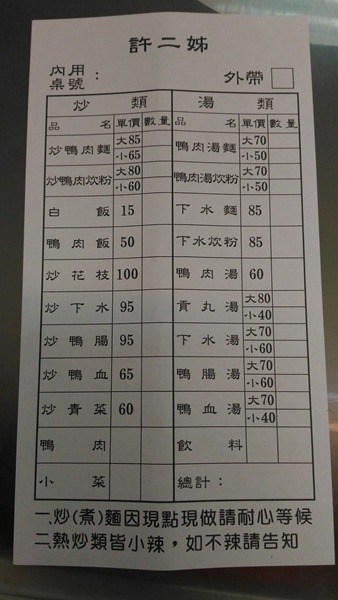 許二姊
內用
桌號： 外帶
炒類 湯類
品名 單價 數量 品名 單價 數量
炒鴨肉麵 大85 小65 鴨肉湯麵 大70 小50
炒鴨肉炊粉 大80 小60 鴨肉湯炊粉 大70 小50
白飯 15 下水麵 85
鴨肉飯 50 下水炊粉 85
炒花枝 100 鴨肉湯 60
炒下水 95 貢丸湯 大80 小40
炒鴨腸 95 下水湯 大70 小60
炒鴨血 65 鴨腸湯 大70 小60
炒青菜 60 鴨血湯 大70 小40
鴨肉 飲料
小菜 總計：
一.炒(煮)麵因現點現做請耐心等候
二.熱炒類皆小辣，如不辣請告知